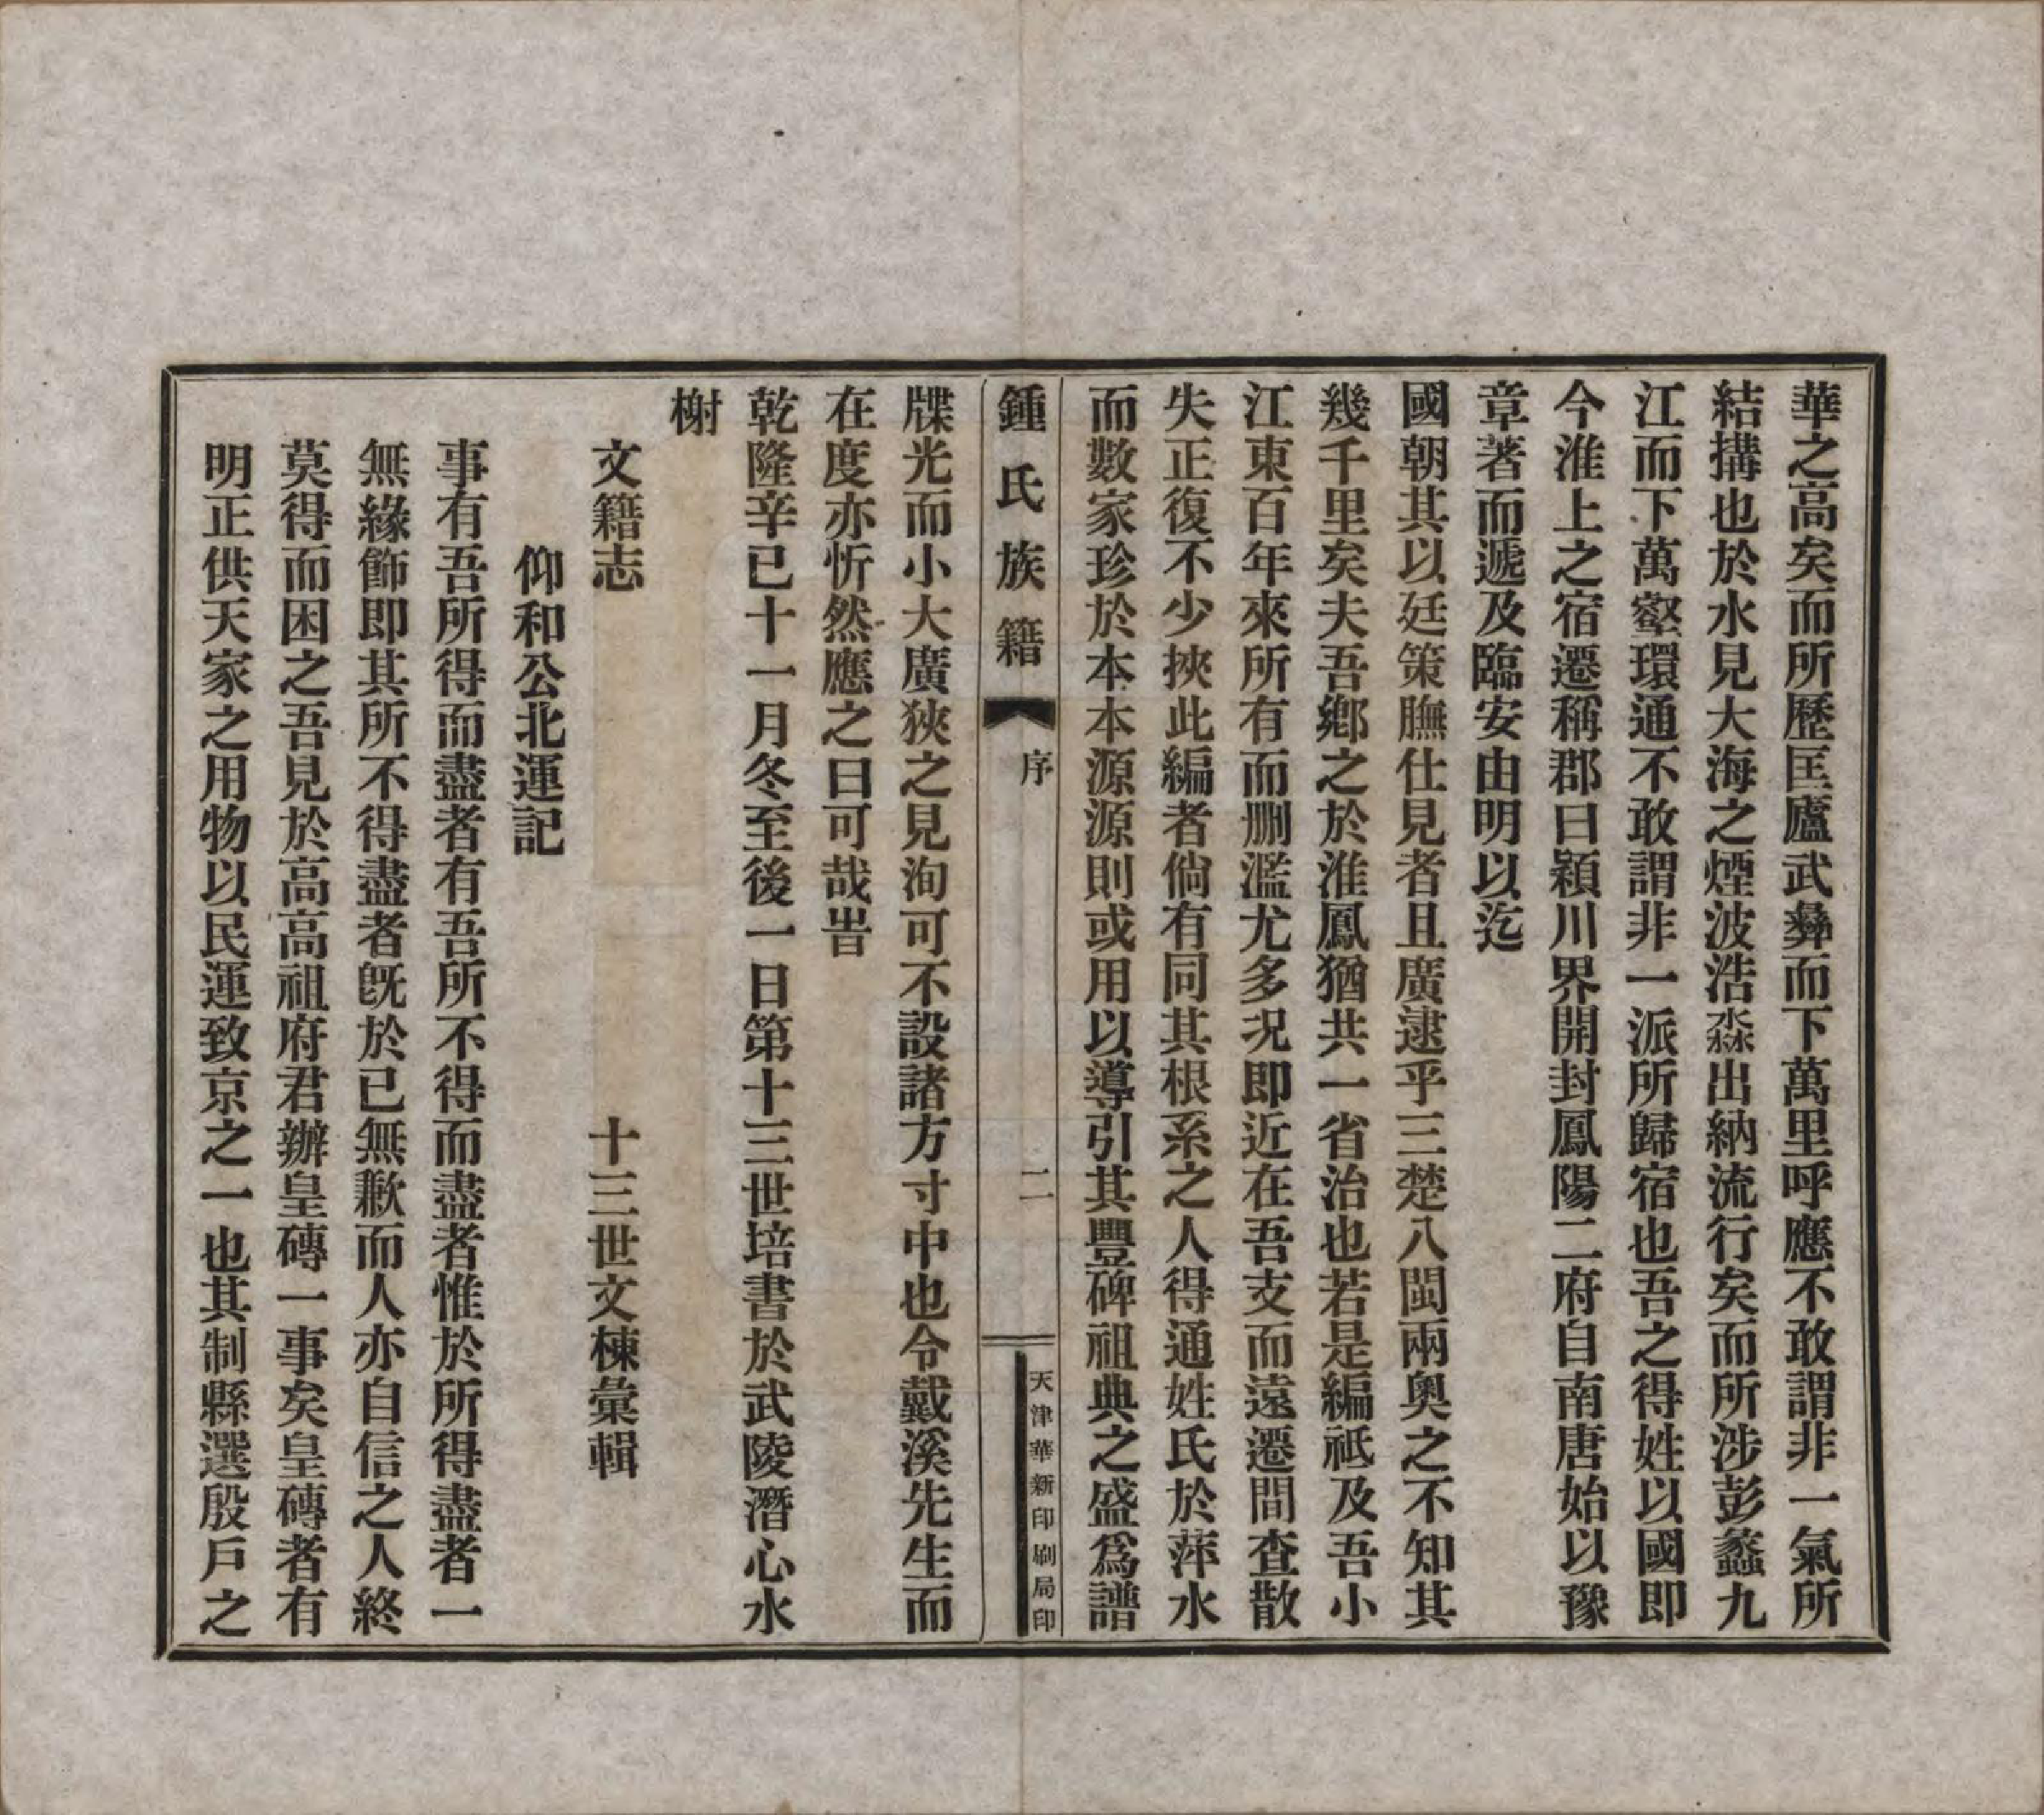 華之高矣而所歷匡廬武彝而下萬里呼應不敢謂非一氣所
結搆也於水見大海之煙波浩淼出納流行矣而所涉彭蠡九
江而下萬壑環通不敢謂非一派所歸宿也吾之得姓以國即
今淮上之宿遷稱郡曰穎川界開封鳳陽二府自南唐始以豫
章著而遞及臨安由明以迄
國朝其以廷策膴仕見者且廣逮乎三楚八閩兩奥之不知其
幾千里矣夫吾鄉之於淮鳳猶共一省治也若是編祗及吾小
江東百年來所有而刪濫尤多况即近在吾支而遠遷間查散
失正復不少挾此編者倘有同其根系之人得通姓氏於萍水
而數家珍於本本源源則或用以導引其豐碑祖典之盛爲譜
鍾氏族籍
序
二
天津華新印刷局印
牒光而小大廣狹之見洵可不設諸方寸中也令戴溪先生而
在度亦忻然應之曰可哉旹
乾隆辛已十一月冬至後一日第十三世培書於武陵潛心水
榭
文籍志
十三世文棟彙輯
仰和公北運記
事有吾所得而盡者有吾所不得而盡者惟於所得盡者一
無緣飾即其所不得盡者旣於已無歉而人亦自信之人終
莫得而困之吾見於高高祖府君辦皇磚一事矣皇磚者有
明正供天家之用物以民運致京之一也其制縣選殷戶之